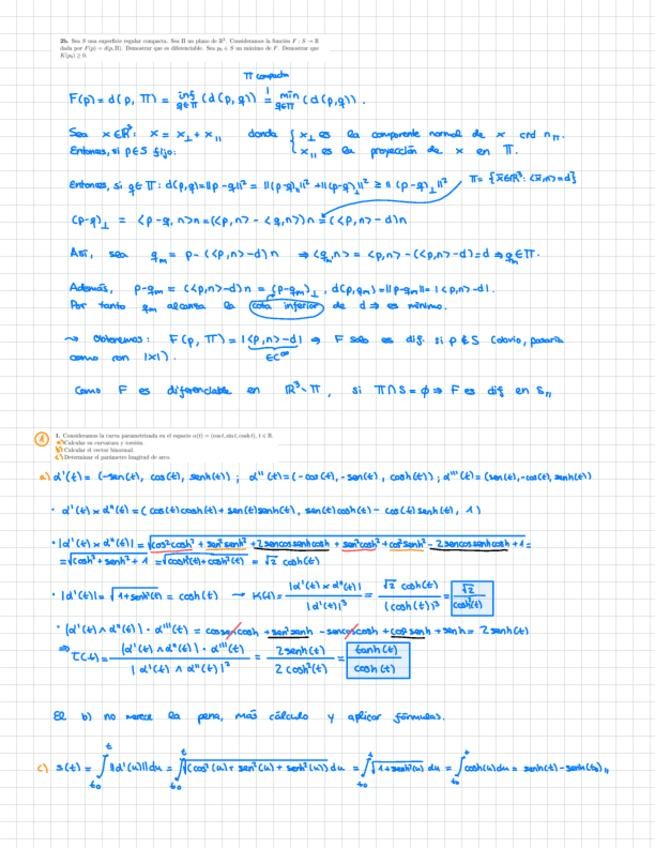 2b. Sea S una superficie regular compacta. Sea Π un plano de ℝ³. Consideramos la función F : S → ℝ
dada por F(p) = d(p, Π). Demostrar que es diferenciable. Sea p₀ ∈ S un máximo de F. Demostrar que
K(p₀) ≥ 0.
Π compacto
F(p) = d(p, Π) = inf_{q∈Π} (d(p,q)) = min_{q∈Π} (d(p,q)).
Sea x∈ℝ³: x = x_⊥ + x_∥ donde { x_⊥ es la componente normal de x crd n_π.
Entonces, si p∈S fijo: x_∥ es la proyección de x en Π.
Entonces, si q∈Π: d(p,q)=||p-q||² = ||(p-q)_∥||² + ||(p-q)_⊥||² ≥ ||(p-q)_⊥||² Π = {x∈ℝ³: <x,n>=d}
(p-q)_⊥ = <p-q, n>n = (<p,n> - <q,n>)n = (<p,n> - d)n
Así, sea q_m = p - (<p,n> - d)n ⇒ <q_m,n> = <p,n> - (<p,n> - d) = d ⇒ q_m∈Π.
Además, p-q_m = (<p,n> - d)n = (p-q_m)_⊥, d(p,q_m) = ||p-q_m|| = |<p,n> - d|.
Por tanto q_m alcanza la cota inferior de d ⇒ es mínimo.
⇝ Obtenemos: F(p, Π) = |<p,n> - d| ⇒ F solo es dif. si p ∉ S (obvio, pasaría
como con |x|). ∈C^∞
Como F es diferenciable en ℝ³∖Π, si Π∩S = ∅ ⇒ F es dif en S,,
1 1. Consideramos la curva parametrizada en el espacio α(t) = (cos t, sin t, cosh t), t ∈ ℝ.
a) Calcular su curvatura y torsión.
b) Calcular el vector binormal.
c) Determinar el parámetro longitud de arco.
a) α'(t) = (-sen(t), cos(t), senh(t)) ; α''(t) = (-cos(t), -sen(t), cosh(t)) ; α'''(t) = (sen(t), -cos(t), senh(t))
· α'(t) × α''(t) = (cos(t)cosh(t) + sen(t)senh(t), sen(t)cosh(t) - cos(t)senh(t), 1)
· |α'(t) × α''(t)| = √(cos²cosh² + sen²senh² + 2sencossenhcosh + sen²cosh² + cos²senh² - 2sencossenhcosh + 1) =
= √(cosh² + senh² + 1) = √(cosh²(t) + cosh²(t)) = √2 cosh(t)
· |α'(t)| = √(1 + senh²(t)) = cosh(t) → K(t) = |α'(t) × α''(t)| / |α'(t)|³ = √2 cosh(t) / (cosh(t))³ = √2 / cosh²(t)
· (α'(t) ∧ α''(t)) · α'''(t) = cossencosh + sen²senh - sencoscosh + cos²senh + senh = 2senh(t)
⇒ τ(t) = (α'(t) ∧ α''(t)) · α'''(t) / |α'(t) ∧ α''(t)|² = 2senh(t) / 2cosh²(t) = tanh(t) / cosh(t)
El b) no merece la pena, más cálculo y aplicar fórmulas.
c) s(t) = ∫_{t₀}^{t} ||α'(u)|| du = ∫_{t₀}^{t} √(cos²(u) + sen²(u) + senh²(u)) du = ∫_{t₀}^{t} √(1 + senh²(u)) du = ∫_{t₀}^{t} cosh(u) du = senh(t) - senh(t₀),,